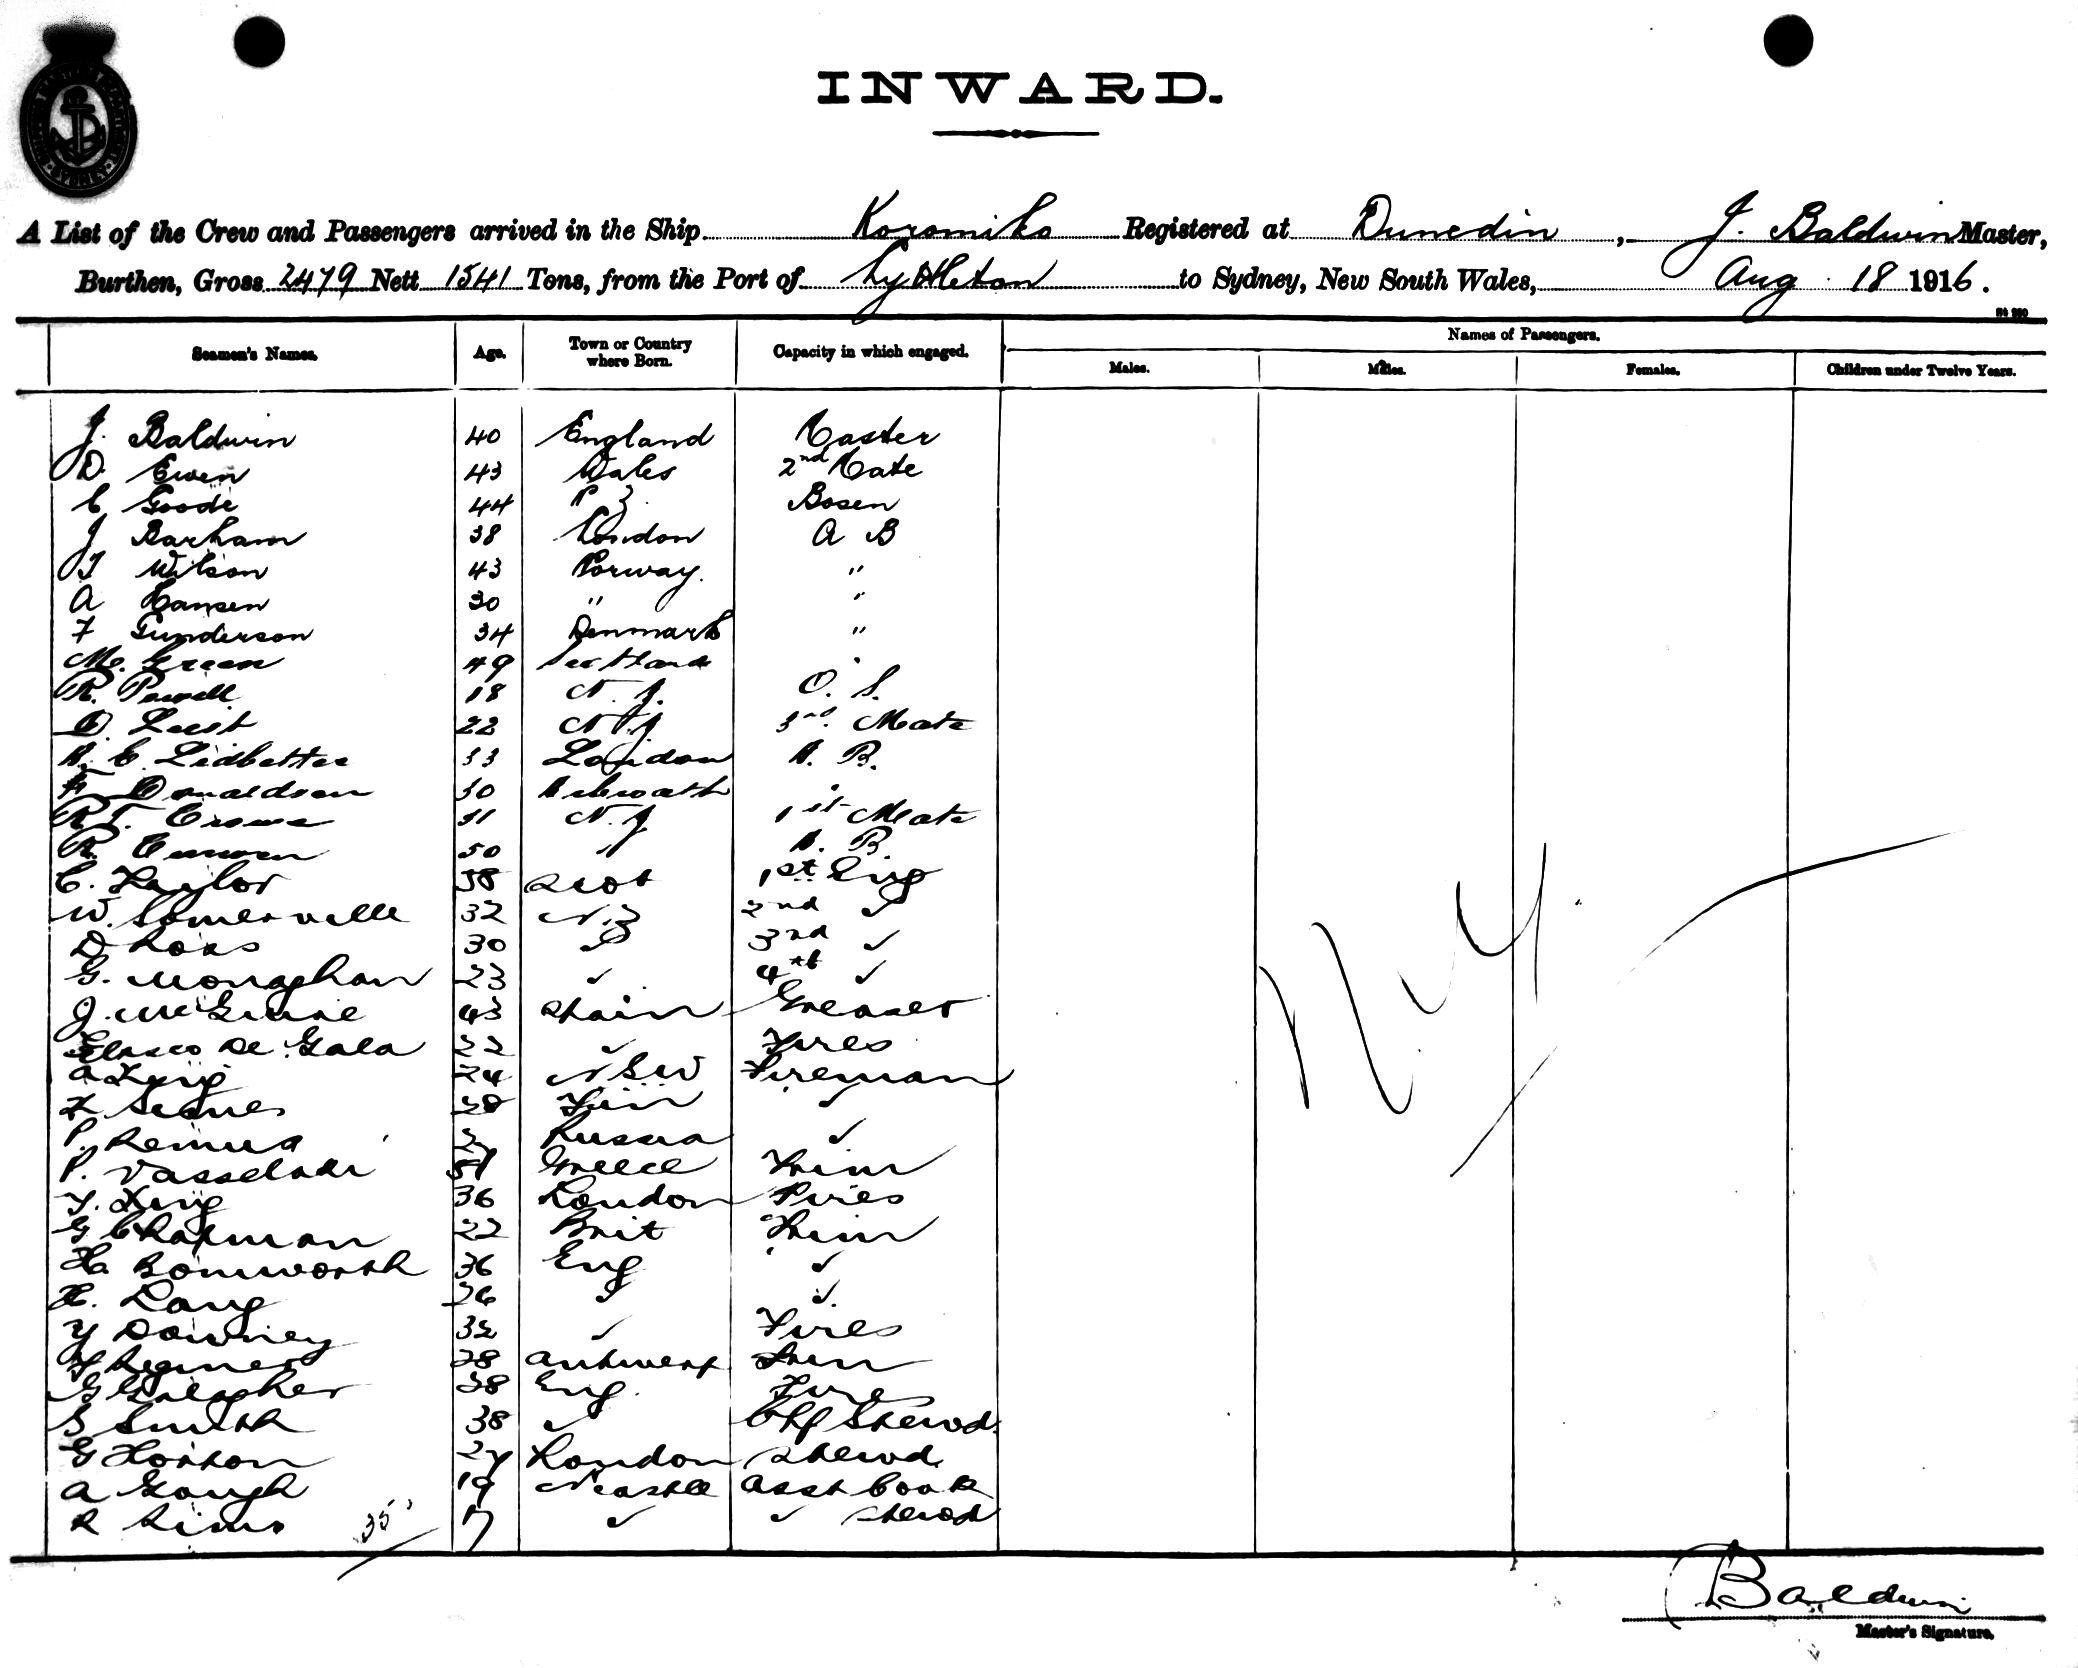 INWARD.
A List of the Crew and Passengers arrived in the Ship Koromiko Registered at Dunedin, J. Baldwin Master,
Burthen, Gross 2479 Nett 1541 Tons, from the Port of Lyttleton to Sydney, New South Wales, Aug 18 1916.
Names of Passengers.
Seamen's Names. Age. Town or Country where Born. Capacity in which engaged. Males. Males. Females. Children under Twelve Years.
J. Baldwin 40 England Master
D. Ewen 43 Wales 2nd Mate
C Goode 44 N Z. Bosen
J Barham 38 London A B
T Wilson 43 Norway. "
A Hansen 30 " "
F Gunderson 34 Denmark "
M. Green 49 Scotland "
R. Powell 18 N. Z. O. S.
D. Leest 22 N Z 3rd. Mate
A. E. Lidbetter 33 London A. B.
F Donaldson 30
R T. Crowe 31 N. Z 1st Mate
R. 50 " A. B
C. Taylor 38 Scot 1st Eng
W. Somerville 32 N. Z 2nd ✓
D Ross 30 ✓ 3rd ✓
G. Monaghan 23 ✓ 4th ✓
J. McGuire 43 Spain Greaser
De Gala 22 ✓ Fires
A King 24 N S W Fireman
28 ✓
P. Remus Russia ✓
P. Vasselaki Greece Trim
T. King 36 London Fires
G Chapman 22 Brit Trim
H. Bomworth 36 Eng ✓
H. Lang 26 ✓ ✓
Y Downey 32 ✓ Fires
28 Antwerp Trim
G Galagher 38 Eng. Fires
S Smith 38 ✓ Chf Stewd.
G Horton 27 London Stewd
A Gough 19 Ncastle Asst Cook
R Sims 17 ✓ ✓ Stewd
35
Baldwin
Master's Signature.